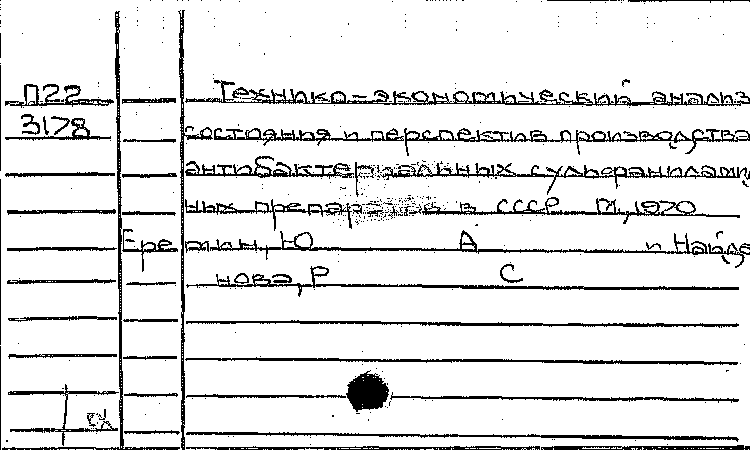 П22 Технико-экономический анализ
3178 состояния и перспектив производства
антибактериальных сульфанилами
ных препаратов в СССР М., 1970
Еремин, Ю А и Найде
нова, Р С